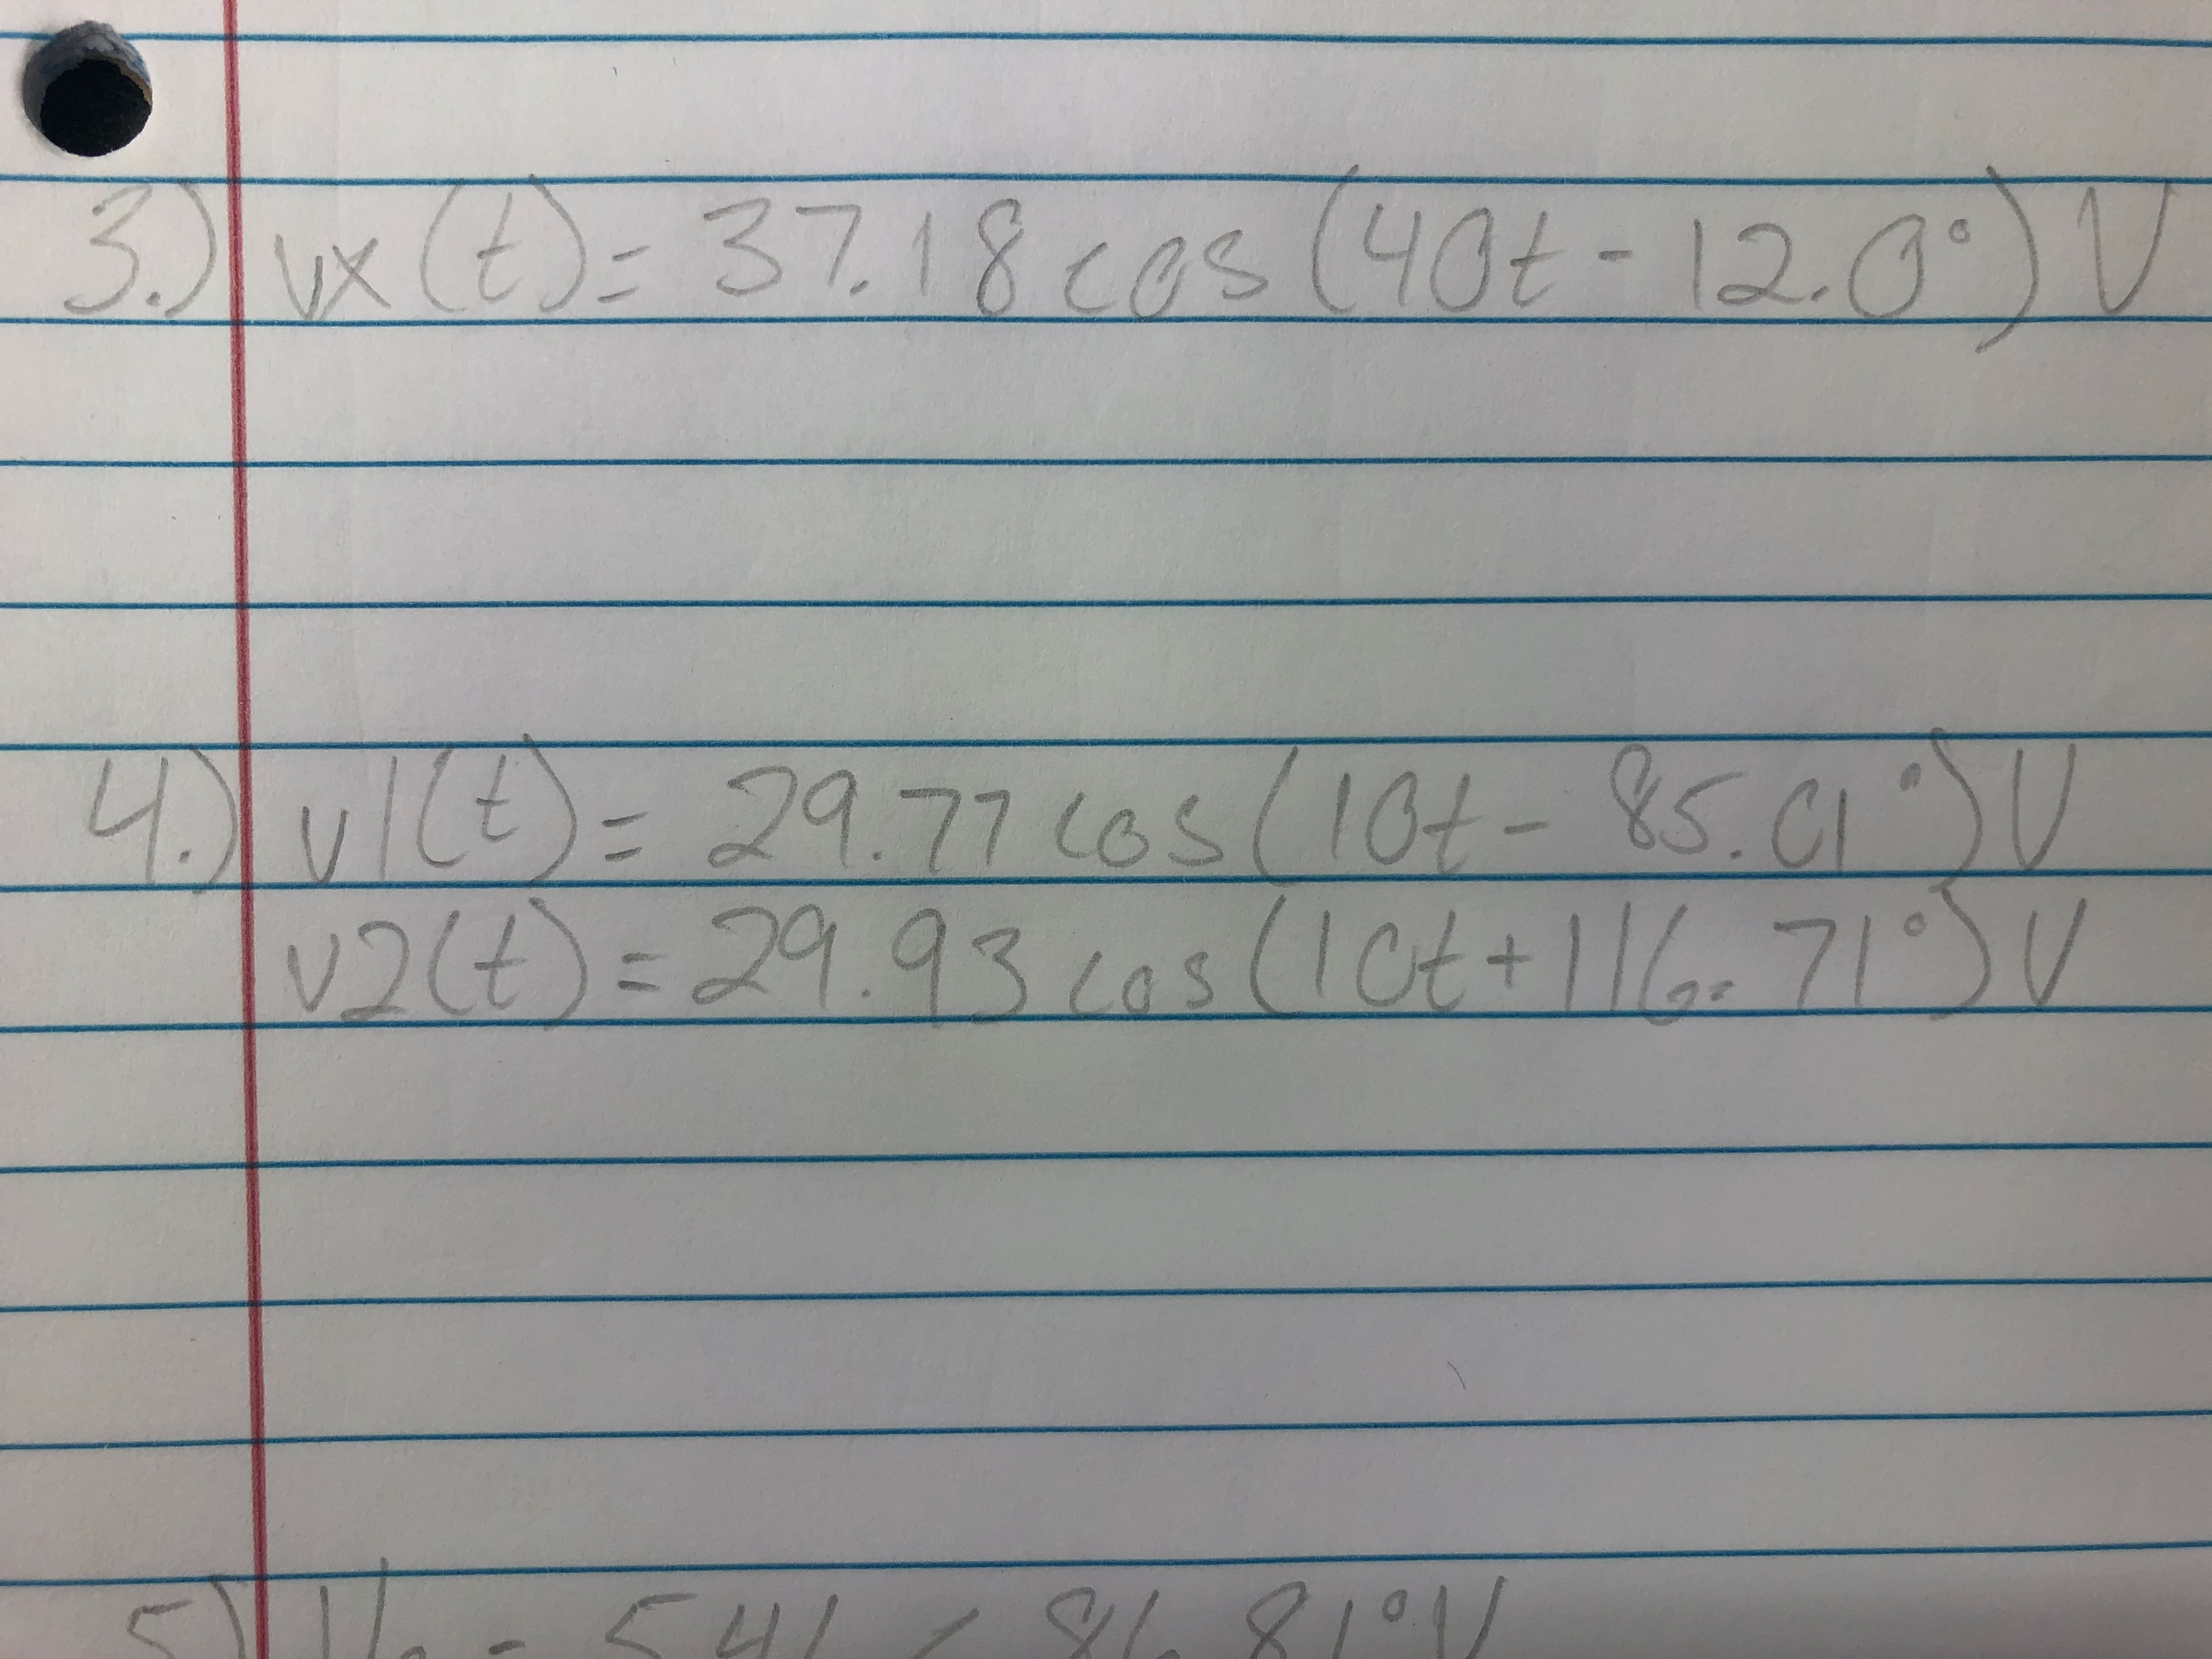 3.) vx(t)= 37.18 cos(40t - 12.0°) V
4.) v1(t)= 29.77 cos(10t - 85.01°) V
v2(t)= 29.93 cos(10t + 116.71°) V
5)